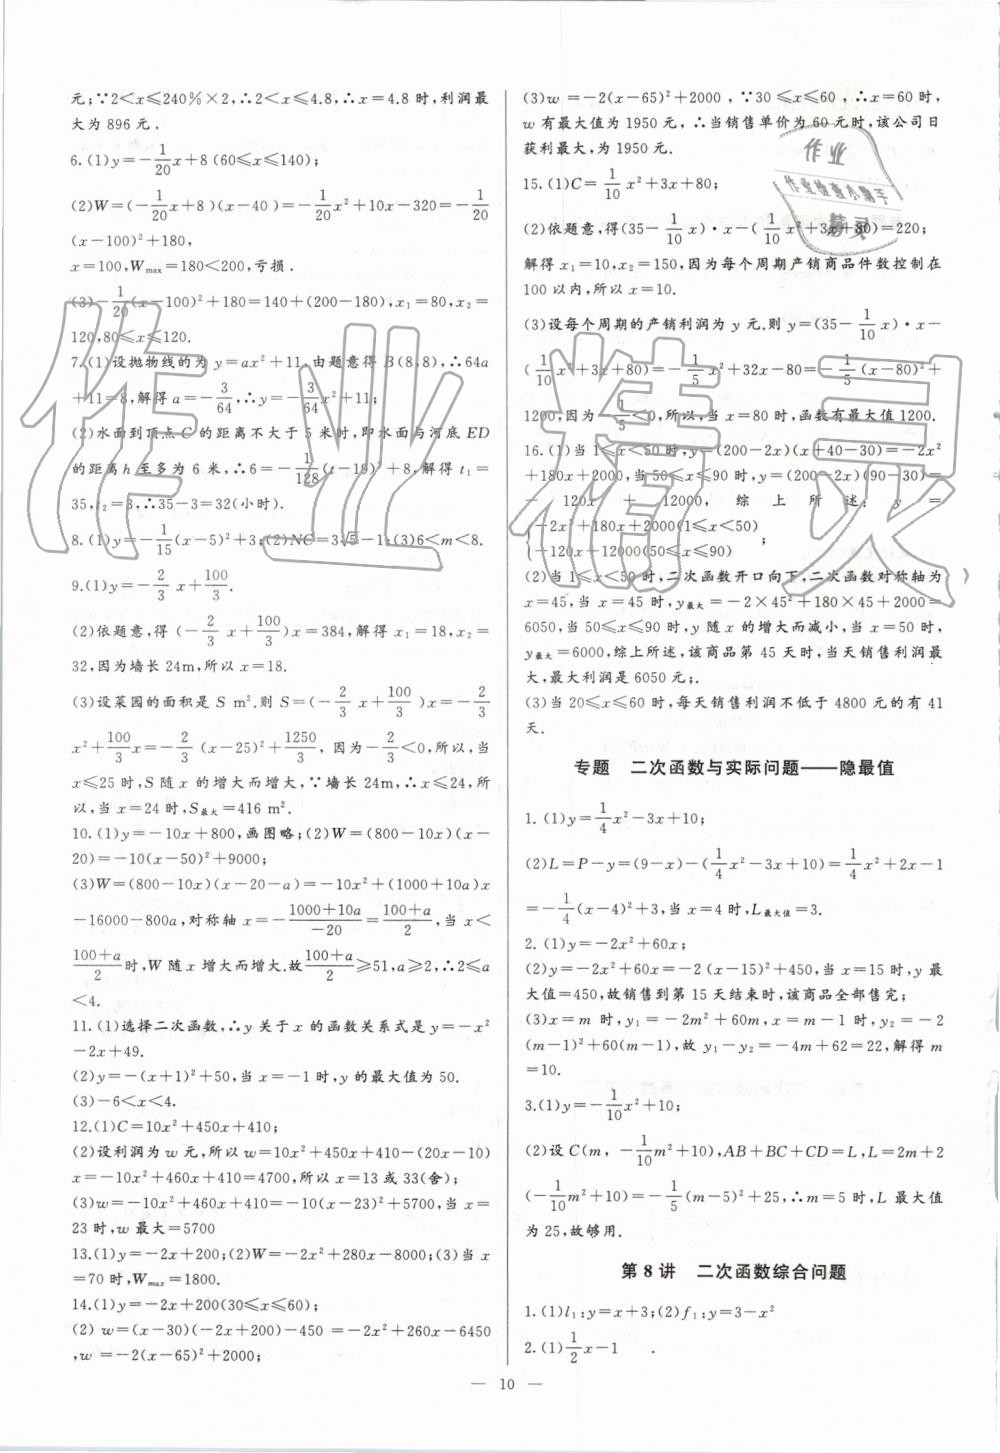 元;∵2<x≤240%×2,∴2<x≤4.8,∴x=4.8时,利润最
大为896元.
6.(1)y=-1/20x+8(60≤x≤140);
(2)W=(-1/20x+8)(x-40)=-1/20x²+10x-320=-1/20
(x-100)²+180,
x=100,Wmax=180<200,亏损.
(3)-1/20(x-100)²+180=140+(200-180),x₁=80,x₂=
120,80≤x≤120.
7.(1)设抛物线的为y=ax²+11,由题意得B(8,8),∴64a
+11=8,解得a=-3/64,∴y=-3/64x²+11;
(2)水面到顶点C的距离不大于5米时,即水面与河底ED
的距离h至多为6米,∴6=-1/128(t-19)²+8,解得t₁=
35,t₂=3,∴35-3=32(小时).
8.(1)y=-1/15(x-5)²+3;(2)NC=3√5-1;(3)6<m<8.
9.(1)y=-2/3x+100/3.
(2)依题意,得(-2/3x+100/3)x=384,解得x₁=18,x₂=
32,因为墙长24m,所以x=18.
(3)设菜园的面积是S m².则S=(-2/3x+100/3)x=-2/3
x²+100/3x=-2/3(x-25)²+1250/3,因为-2/3<0,所以,当
x≤25时,S随x的增大而增大,∵墙长24m,∴x≤24,所
以,当x=24时,S最大=416 m².
10.(1)y=-10x+800,画图略;(2)W=(800-10x)(x-
20)=-10(x-50)²+9000;
(3)W=(800-10x)(x-20-a)=-10x²+(1000+10a)x
-16000-800a,对称轴x=-(1000+10a)/(-20)=(100+a)/2,当x<
(100+a)/2时,W随x增大而增大.故(100+a)/2≥51,a≥2,∴2≤a
<4.
11.(1)选择二次函数,∴y关于x的函数关系式是y=-x²
-2x+49.
(2)y=-(x+1)²+50,当x=-1时,y的最大值为50.
(3)-6<x<4.
12.(1)C=10x²+450x+410;
(2)设利润为w元,所以w=10x²+450x+410-(20x-10)
x=-10x²+460x+410=4700,所以x=13或33(舍);
(3)w=-10x²+460x+410=-10(x-23)²+5700,当x=
23时,w最大=5700
13.(1)y=-2x+200;(2)W=-2x²+280x-8000;(3)当x
=70时,Wmax=1800.
14.(1)y=-2x+200(30≤x≤60);
(2)w=(x-30)(-2x+200)-450=-2x²+260x-6450
,w=-2(x-65)²+2000;
(3)w=-2(x-65)²+2000,∵30≤x≤60,∴x=60时,
w有最大值为1950元,∴当销售单价为60元时,该公司日
获利最大,为1950元.
15.(1)C=1/10x²+3x+80;
(2)依题意,得(35-1/10x)·x-(1/10x²+3x+80)=220;
解得x₁=10,x₂=150,因为每个周期产销商品件数控制在
100以内,所以x=10.
(3)设每个周期的产销利润为y元.则y=(35-1/10x)·x-
(1/10x²+3x+80)=-1/5x²+32x-80=-1/5(x-80)²+
1200,因为-1/5<0,所以,当x=80时,函数有最大值1200.
16.(1)当1≤x<50时,y=(200-2x)(x+40-30)=-2x²
+180x+2000,当50≤x≤90时,y=(200-2x)(90-30)=
-120x+12000,综上所述:y=
{-2x²+180x+2000(1≤x<50)
{-120x+12000(50≤x≤90);
(2)当1≤x<50时,二次函数开口向下,二次函数对称轴为
x=45,当x=45时,y最大=-2×45²+180×45+2000=
6050,当50≤x≤90时,y随x的增大而减小,当x=50时,
y最大=6000,综上所述,该商品第45天时,当天销售利润最
大,最大利润是6050元;.
(3)当20≤x≤60时,每天销售利润不低于4800元的有41
天.
专题 二次函数与实际问题——隐最值
1.(1)y=1/4x²-3x+10;
(2)L=P-y=(9-x)-(1/4x²-3x+10)=1/4x²+2x-1
=-1/4(x-4)²+3,当x=4时,L最大值=3.
2.(1)y=-2x²+60x;
(2)y=-2x²+60x=-2(x-15)²+450,当x=15时,y最
大值=450,故销售到第15天结束时,该商品全部售完;
(3)x=m时,y₁=-2m²+60m,x=m-1时,y₂=-2
(m-1)²+60(m-1),故y₁-y₂=-4m+62=22,解得m
=10.
3.(1)y=-1/10x²+10;
(2)设C(m,-1/10m²+10),AB+BC+CD=L,L=2m+2
(-1/10m²+10)=-1/5(m-5)²+25,∴m=5时,L最大值
为25,故够用.
第8讲 二次函数综合问题
1.(1)l₁:y=x+3;(2)f₁:y=3-x²
2.(1)1/2x-1 .
— 10 —
作业精灵
作业
作业检查小助手
精灵